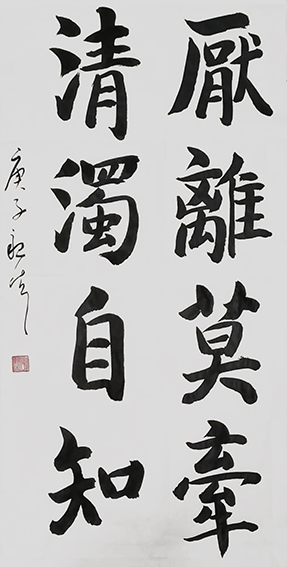 厭離莫牽
清濁自知
庚子